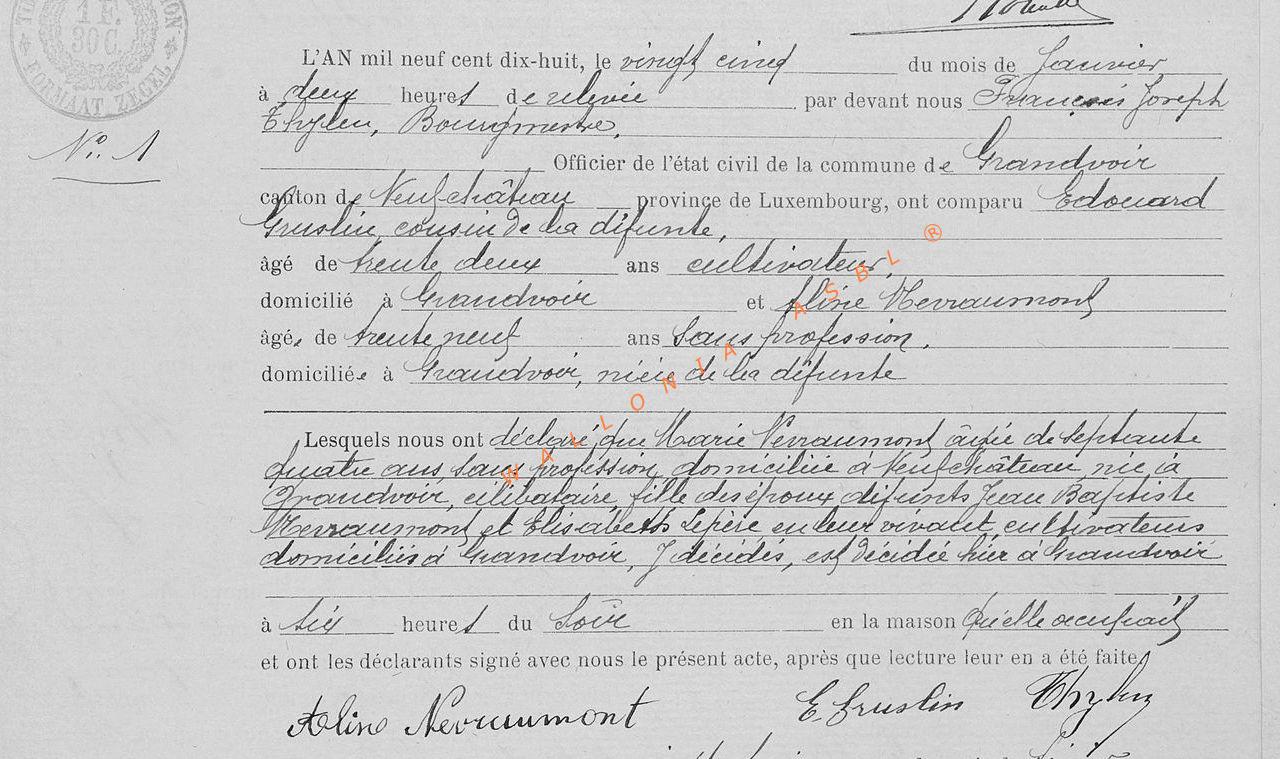 1 F.
30 C.
FORMAAT ZEGEL
L'AN mil neuf cent dix-huit, le vingt cinq du mois de Janvier
à deux heures de relevée par devant nous François Joseph
Thylen, Bourgmestre,
N° 1
Officier de l'état civil de la commune de Grandvoir
canton de Neufchâteau province de Luxembourg, ont comparu Edouard
Gruslin, cousin de la défunte,
âgé de trente deux ans cultivateur,
domicilié à Grandvoir et Aline Nevraumont
âgée de trente neuf ans sans profession,
domiciliée à Grandvoir, nièce de la défunte
Lesquels nous ont déclaré que Marie Nevraumont âgée de septante
quatre ans, sans profession, domiciliée à Neufchâteau née à
Grandvoir, célibataire, fille des époux défunts Jean Baptiste
Nevraumont et Elisabeth Lepère en leur vivant, cultivateurs
domiciliés à Grandvoir, y décédés, est décédée hier à Grandvoir
à six heures du Soir en la maison qu'elle occupait
et ont les déclarants signé avec nous le présent acte, après que lecture leur en a été faite
Aline Nevraumont E. Gruslin Thylen
WALLONIA ASBL ®